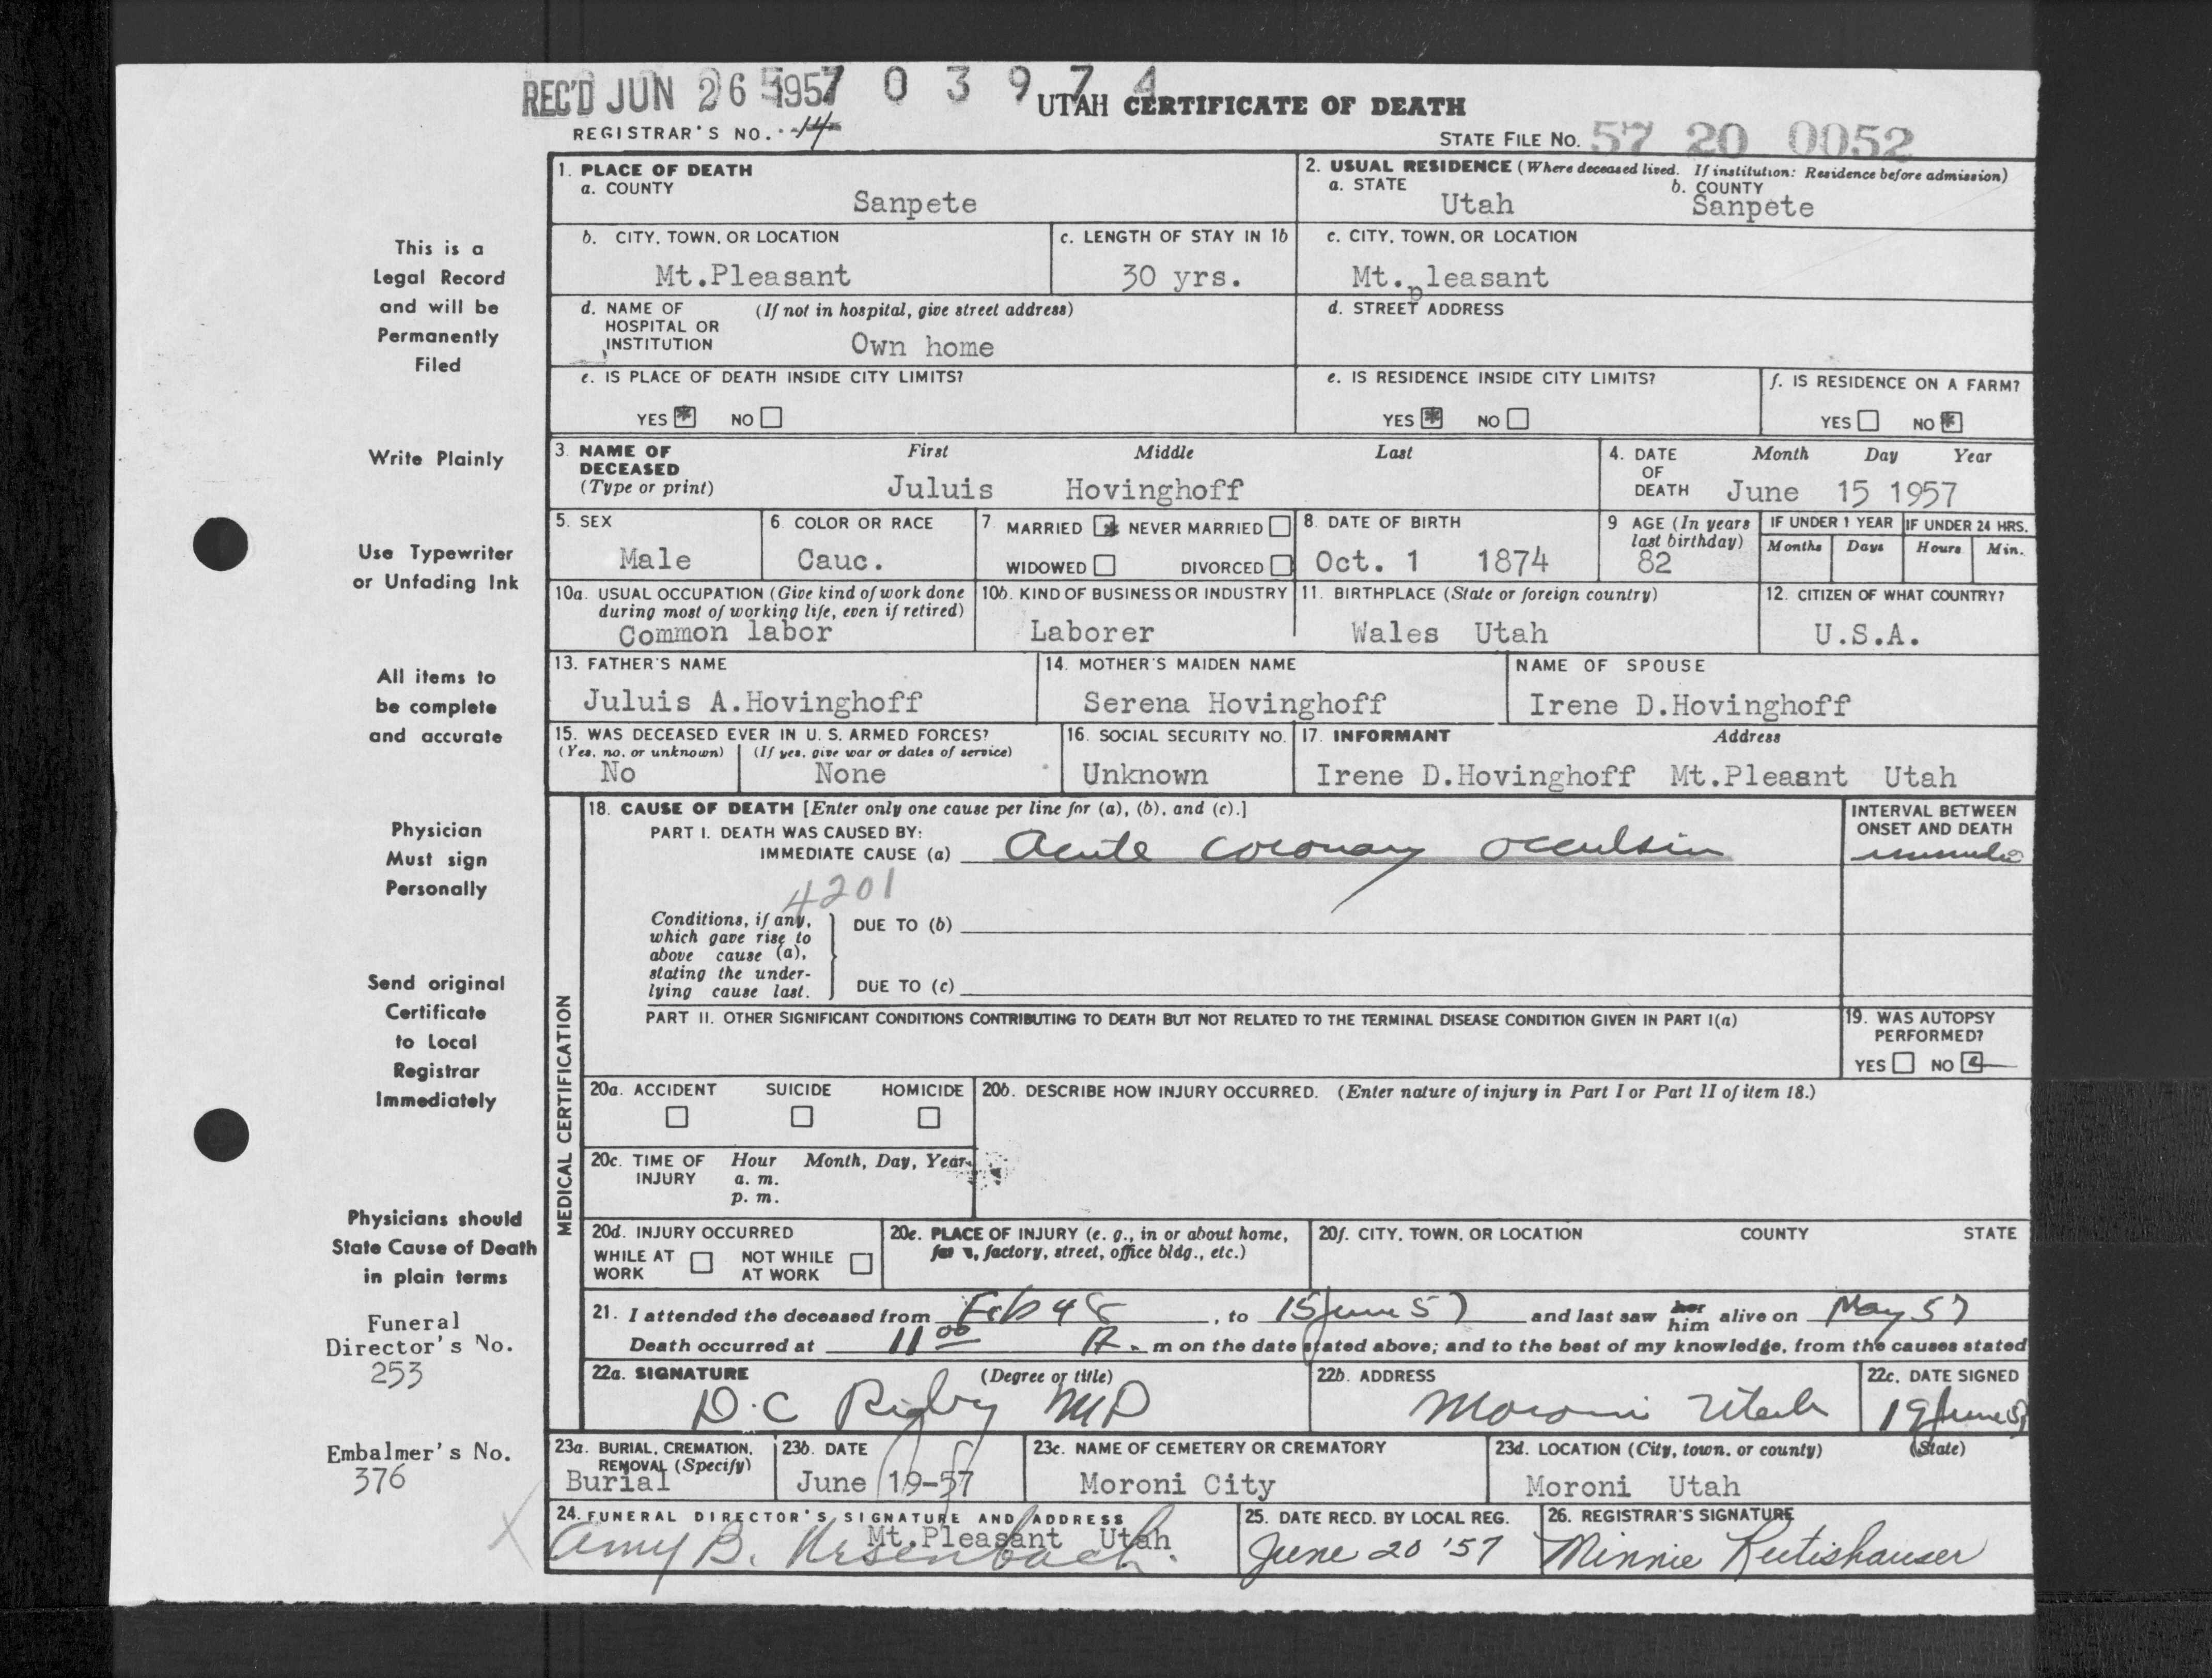 REC'D JUN 26 1957 57 0 3 9 7 4
UTAH CERTIFICATE OF DEATH
REGISTRAR'S NO. 14
STATE FILE NO. 57 20 0052
1. PLACE OF DEATH
a. COUNTY
Sanpete
2. USUAL RESIDENCE (Where deceased lived. If institution: Residence before admission)
a. STATE
Utah
b. COUNTY
Sanpete
b. CITY, TOWN, OR LOCATION
Mt.Pleasant
c. LENGTH OF STAY IN 1b
30 yrs.
c. CITY, TOWN, OR LOCATION
Mt.pleasant
d. NAME OF HOSPITAL OR INSTITUTION (If not in hospital, give street address)
Own home
d. STREET ADDRESS
e. IS PLACE OF DEATH INSIDE CITY LIMITS?
YES * NO
e. IS RESIDENCE INSIDE CITY LIMITS?
YES * NO
f. IS RESIDENCE ON A FARM?
YES NO *
3. NAME OF DECEASED (Type or print)
First Middle Last
Juluis Hovinghoff
4. DATE OF DEATH
Month Day Year
June 15 1957
5. SEX
Male
6. COLOR OR RACE
Cauc.
7. MARRIED * NEVER MARRIED
WIDOWED DIVORCED
8. DATE OF BIRTH
Oct. 1 1874
9 AGE (In years last birthday)
82
IF UNDER 1 YEAR
Months Days
IF UNDER 24 HRS.
Hours Min.
10a. USUAL OCCUPATION (Give kind of work done during most of working life, even if retired)
Common labor
10b. KIND OF BUSINESS OR INDUSTRY
Laborer
11. BIRTHPLACE (State or foreign country)
Wales Utah
12. CITIZEN OF WHAT COUNTRY?
U.S.A.
13. FATHER'S NAME
Juluis A.Hovinghoff
14. MOTHER'S MAIDEN NAME
Serena Hovinghoff
NAME OF SPOUSE
Irene D.Hovinghoff
15. WAS DECEASED EVER IN U. S. ARMED FORCES?
(Yes, no, or unknown) (If yes, give war or dates of service)
No None
16. SOCIAL SECURITY NO.
Unknown
17. INFORMANT Address
Irene D.Hovinghoff Mt.Pleasnt Utah
MEDICAL CERTIFICATION
18. CAUSE OF DEATH [Enter only one cause per line for (a), (b), and (c).]
PART I. DEATH WAS CAUSED BY:
IMMEDIATE CAUSE (a) Acute coronary occulsin
INTERVAL BETWEEN ONSET AND DEATH
4201
Conditions, if any, which gave rise to above cause (a), stating the underlying cause last.
DUE TO (b)
DUE TO (c)
PART II. OTHER SIGNIFICANT CONDITIONS CONTRIBUTING TO DEATH BUT NOT RELATED TO THE TERMINAL DISEASE CONDITION GIVEN IN PART I(a)
19. WAS AUTOPSY PERFORMED?
YES NO
20a. ACCIDENT SUICIDE HOMICIDE
20b. DESCRIBE HOW INJURY OCCURRED. (Enter nature of injury in Part I or Part II of item 18.)
20c. TIME OF INJURY
Hour Month, Day, Year
a. m.
p. m.
20d. INJURY OCCURRED
WHILE AT WORK NOT WHILE AT WORK
20e. PLACE OF INJURY (e. g., in or about home, factory, street, office bldg., etc.)
20f. CITY, TOWN, OR LOCATION COUNTY STATE
21. I attended the deceased from Feb 48, to 15 June 57 and last saw her him alive on May 57
Death occurred at 11 00 A. m on the date stated above; and to the best of my knowledge, from the causes stated
22a. SIGNATURE (Degree or title)
D.C Rigby MD
22b. ADDRESS
Moroni Utah
22c. DATE SIGNED
19 June 57
23a. BURIAL, CREMATION, REMOVAL (Specify)
Burial
23b. DATE
June 19-57
23c. NAME OF CEMETERY OR CREMATORY
Moroni City
23d. LOCATION (City, town, or county) (State)
Moroni Utah
24. FUNERAL DIRECTOR'S SIGNATURE AND ADDRESS
Mt.Pleasant Utah
Amy B. Ursenbach.
25. DATE RECD. BY LOCAL REG.
June 20 '57
26. REGISTRAR'S SIGNATURE
Minnie Rutishauser
This is a
Legal Record
and will be
Permanently
Filed
Write Plainly
Use Typewriter
or Unfading Ink
All items to
be complete
and accurate
Physician
Must sign
Personally
Send original
Certificate
to Local
Registrar
Immediately
Physicians should
State Cause of Death
in plain terms
Funeral
Director's No.
253
Embalmer's No.
376